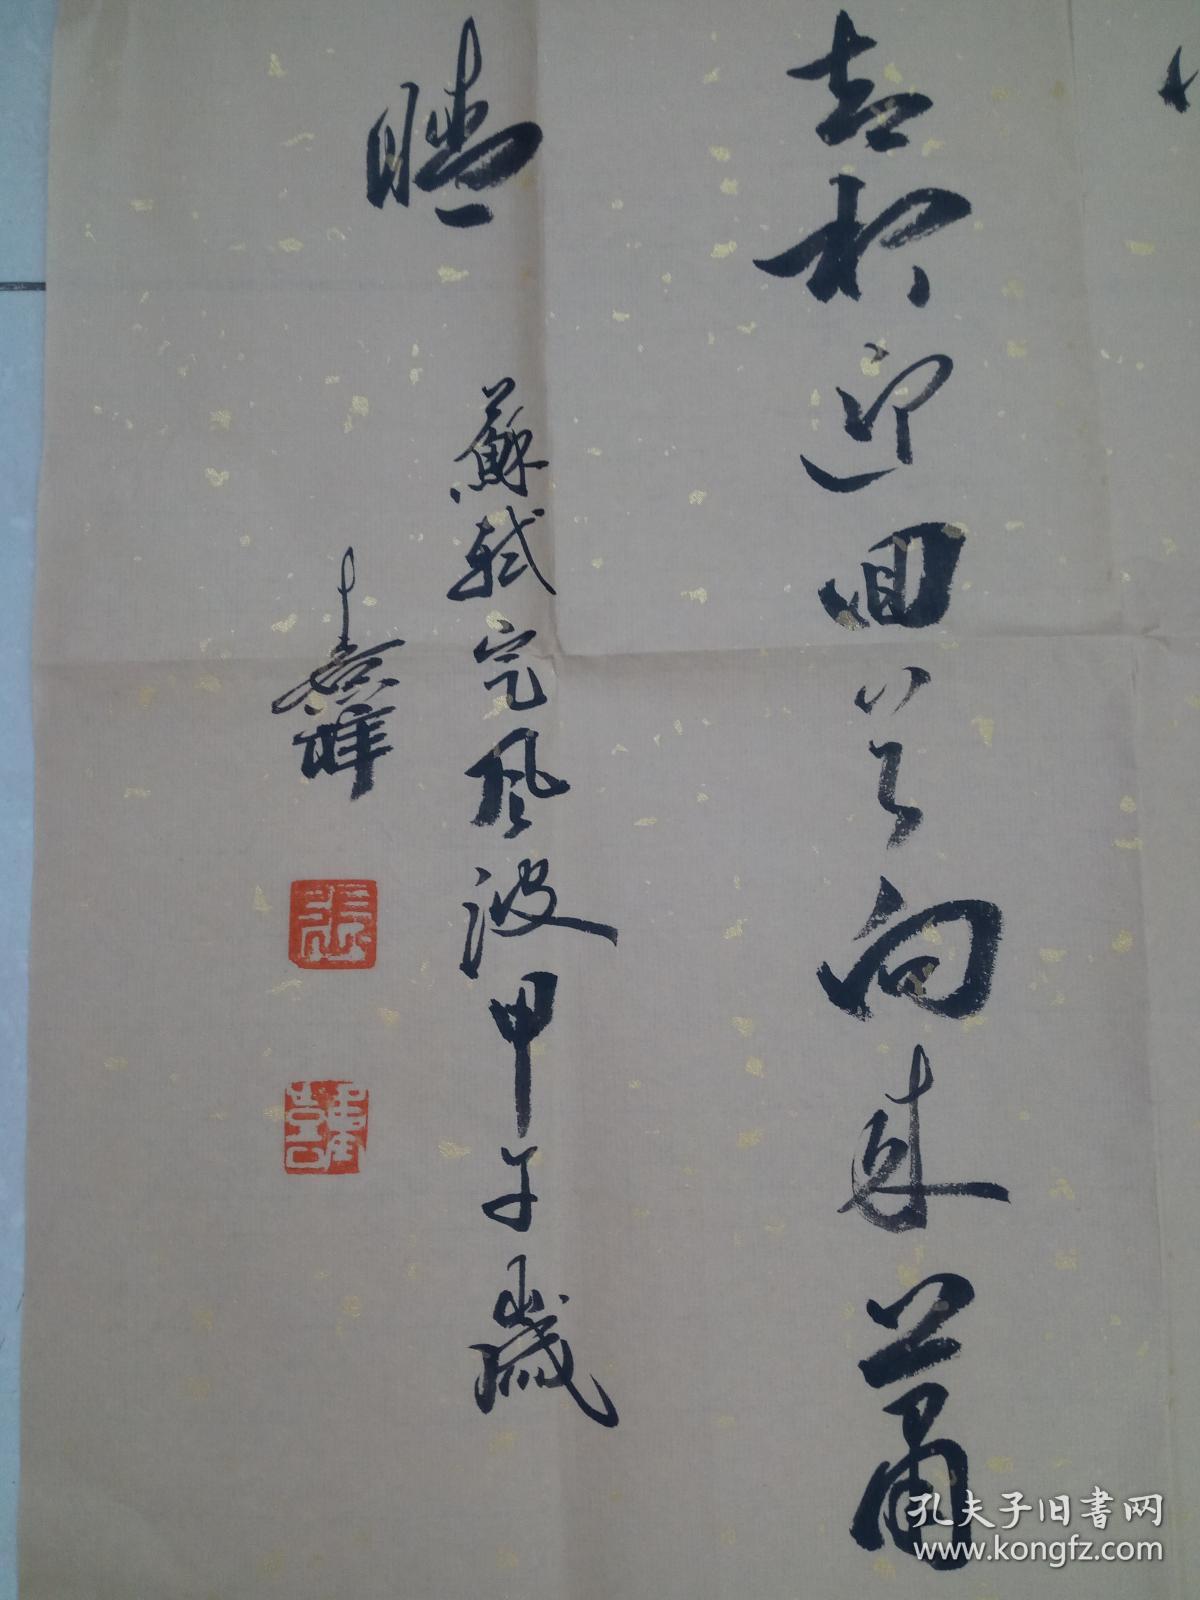 却相迎回首向来萧
晴
蘇軾定风波甲午歲
張
孔夫子旧书网
www.kongfz.com